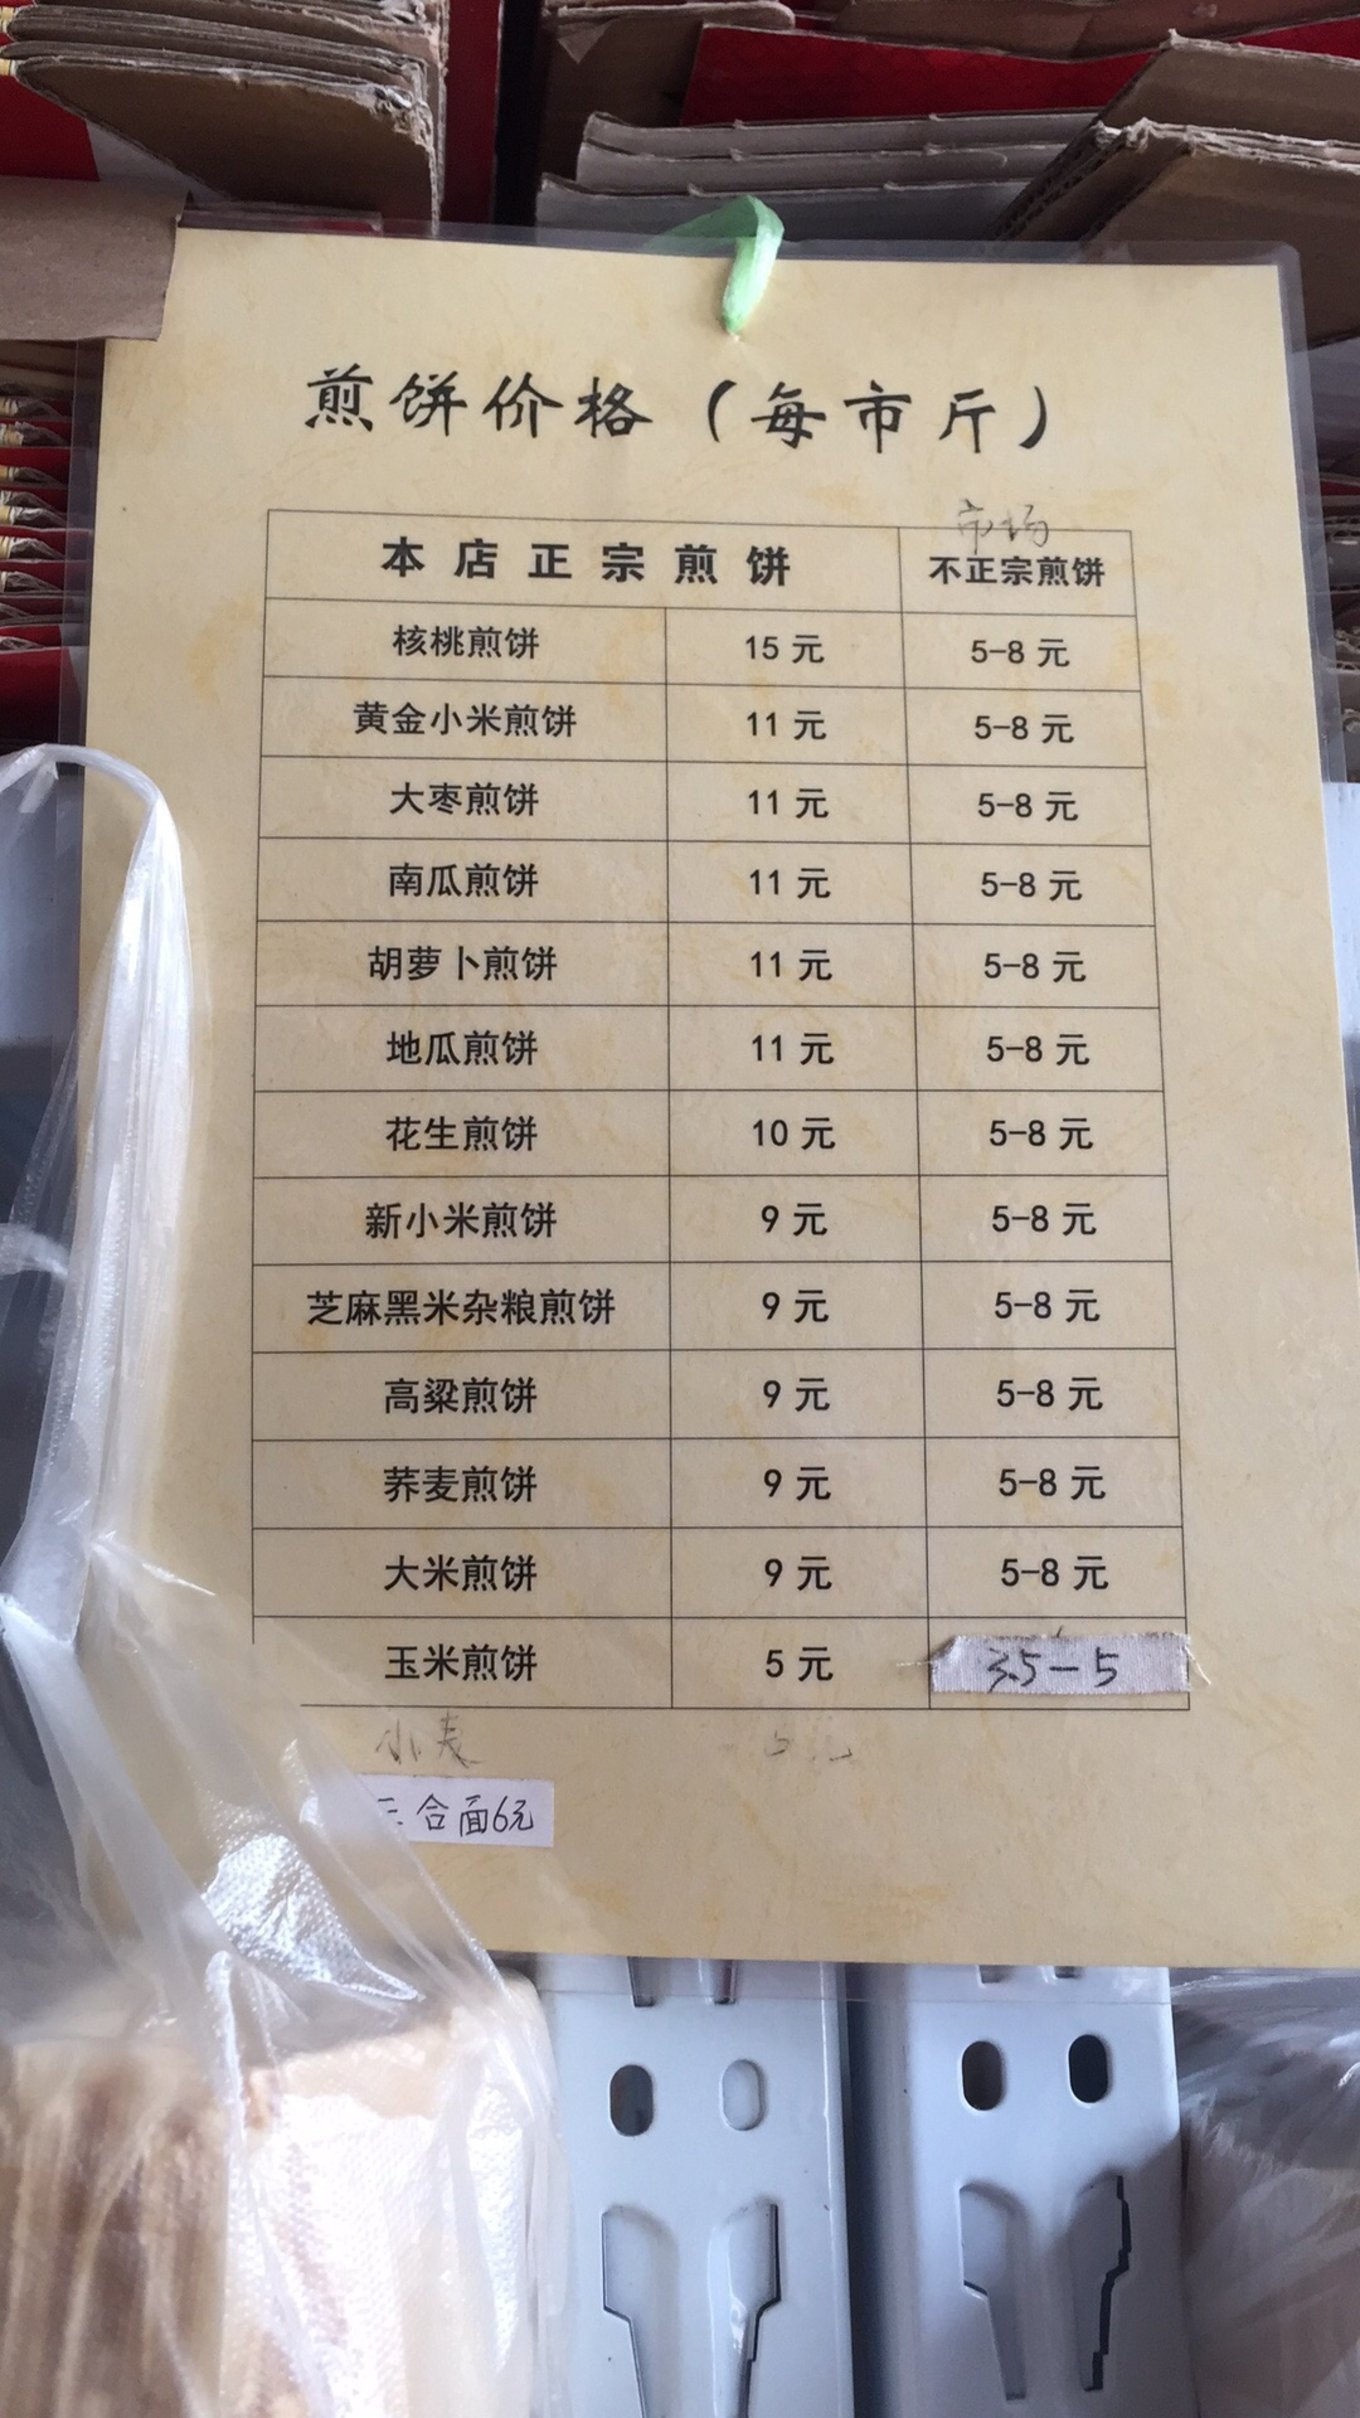 煎饼价格（每市斤）
市场
本店正宗煎饼 不正宗煎饼
核桃煎饼 15 元 5-8 元
黄金小米煎饼 11 元 5-8 元
大枣煎饼 11 元 5-8 元
南瓜煎饼 11 元 5-8 元
胡萝卜煎饼 11 元 5-8 元
地瓜煎饼 11 元 5-8 元
花生煎饼 10 元 5-8 元
新小米煎饼 9 元 5-8 元
芝麻黑米杂粮煎饼 9 元 5-8 元
高粱煎饼 9 元 5-8 元
荞麦煎饼 9 元 5-8 元
大米煎饼 9 元 5-8 元
玉米煎饼 5 元 3.5-5
小麦
三合面6元